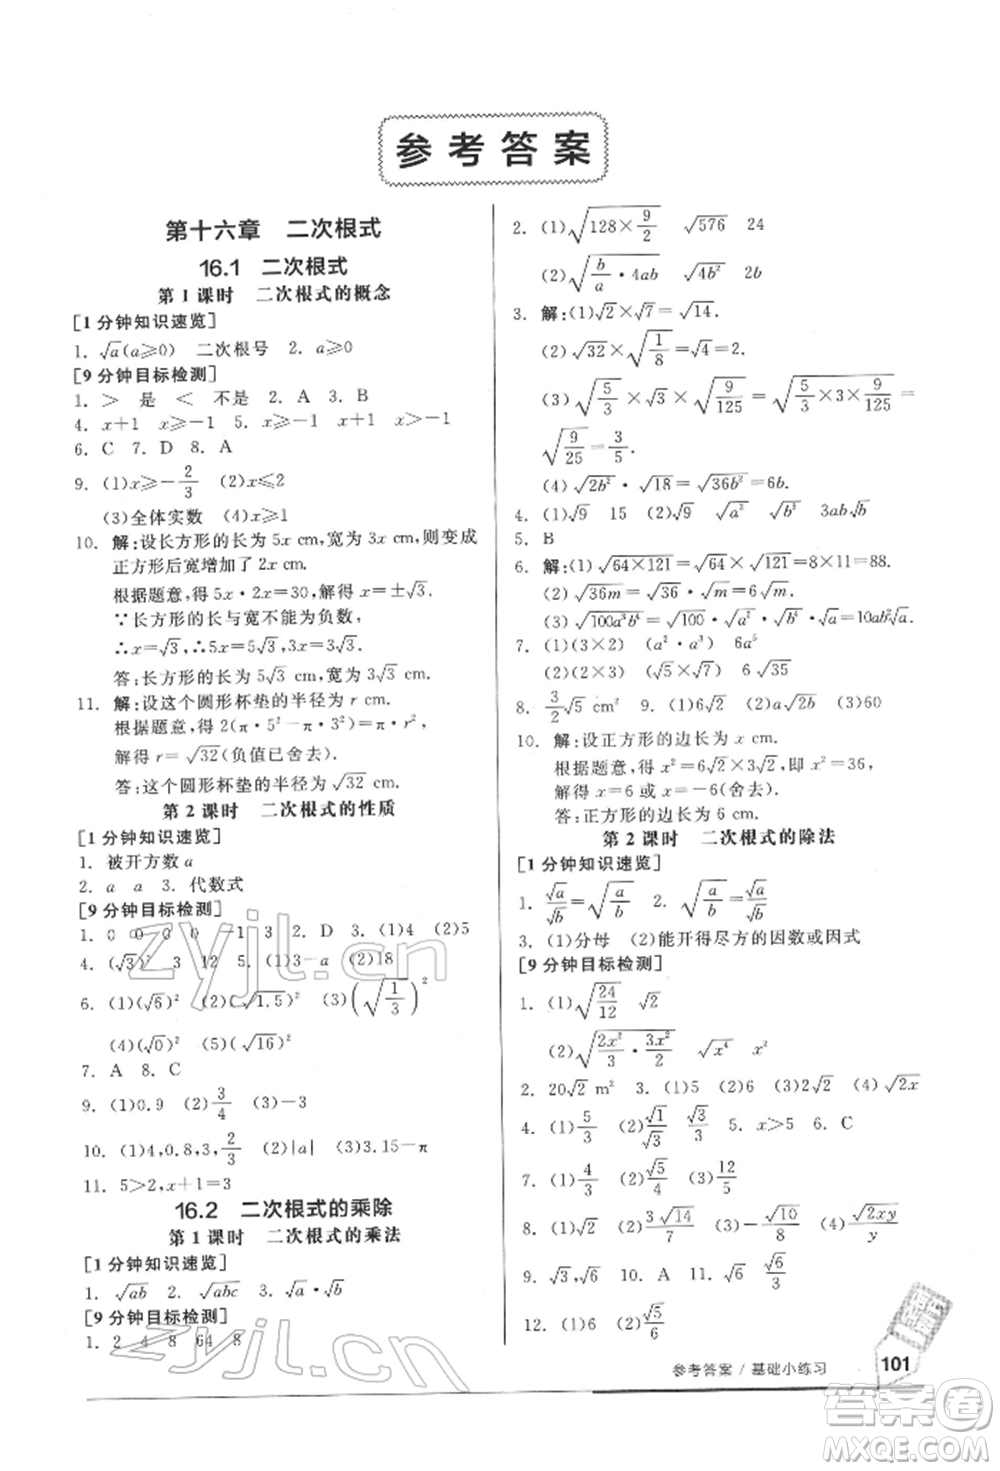 参考答案
第十六章 二次根式
16.1 二次根式
第1课时 二次根式的概念
[1分钟知识速览]
1. √a(a⩾0) 二次根号 2. a⩾0
[9分钟目标检测]
1. > 是 < 不是 2. A 3. B
4. x+1 x⩾-1 5. x+1 x⩾-1 x>-1
6. C 7. D 8. A
9. (1)x⩾-2/3 (2)x⩽2
(3)全体实数 (4)x⩾1
10. 解:设长方形的长为5x cm,宽为3x cm,则变成
正方形后宽增加了2x cm.
根据题意,得5x·2x=30,解得x=±√3.
∵长方形的长与宽不能为负数,
∴x=√3,∴5x=5√3,3x=3√3.
答:长方形的长为5√3 cm,宽为3√3 cm.
11. 解:设这个圆形杯垫的半径为r cm.
根据题意,得2(π·5²-π·3²)=π·r²,
解得r=√32(负值已舍去).
答:这个圆形杯垫的半径为√32 cm.
第2课时 二次根式的性质
[1分钟知识速览]
1. 被开方数a
2. a a 3. 代数式
[9分钟目标检测]
1. 0 0 0 0 -1 3 2. D 3. (1)4 (2)5
4. (√3)² 3 12 5. (1)3-a (2)18
6. (1)(√6)² (2)(√1.5)² (3)(√(1/3))²
(4)(√0)² (5)(√16)²
7. A 8. C
9. (1)0.9 (2)3/4 (3)-3
10. (1)4,0.8,3,2/3 (2)|a| (3)4-π
11. 5>2,x+1=3
16.2 二次根式的乘除
第1课时 二次根式的乘法
[1分钟知识速览]
1. √ab 2. √abc 3. √a·√b
[9分钟目标检测]
1. 2 4 8 64 8
2. (1)√(128×9/2) √576 24
(2)√(b/a·4ab) √4b² 2b
3. 解:(1)√2×√7=√14.
(2)√32×√(1/8)=√4=2.
(3)√(5/3)×√3×√(9/125)=√(5/3×3×9/125)=
√(9/25)=3/5.
(4)√2b²·√18=√36b²=6b.
4. (1)√9 15 (2)√9 √a² √b² 3ab
5. B
6. 解:(1)√(64×121)=√64×√121=8×11=88.
(2)√36m=√36·√m=6√m.
(3)√100a³b⁴=√100·√a²·√b⁴·√a=10ab²√a.
7. (1)(3×2) (a²·a³) 6a⁵
(2)(3×2) (√5×√7) 6√35
8. 3/2√5 cm² 9. (1)6√2 (2)a√2b (3)60
10. 解:设正方形的边长为x cm.
根据题意,得x²=6√2×3√2,即x²=36,
解得x=6或x=-6(舍去).
答:正方形的边长为6 cm.
第2课时 二次根式的除法
[1分钟知识速览]
1. √a/√b=√(a/b) 2. √(a/b)=√a/√b
3. (1)分母 (2)能开得尽方的因数或因式
[9分钟目标检测]
1. (1)√(24/12) √2
(2)√(2x³/3·3x²/2) √x⁴ x²
2. 20√2 m² 3. (1)5 (2)3√2 (3)2 (4)√2x
4. (1)5/3 (2)√1/√3 √3/3 5. x>5 6. C
7. (1)6/5 (2)√5/4 (3)12/5
8. (1)√2 (2)3√14/7 (3)-√10/8 (4)√2xy/y
9. √3,√6 10. A 11. √6 √6/3
12. (1)6 (2)√5/6
参考答案 / 基础小练习 101
zyjl.cn
zyjl.cn
答案卷
MXQE.COM